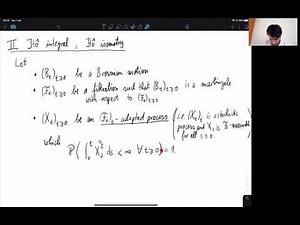 II Itô integral, Itô isometry
Let
• (Bt)t≥0 be a Brownian motion
• (Ft)t≥0 be a filtration such that (Bt)t≥0 is a martingale
with respect to (Ft)t≥0
• (Xt)t≥0 be an (Ft)t-adapted process (i.e. (Xt)t is a stochastic
process and Xt is Ft-measurable
for all t≥0)
which
P( ∫₀ᵗ Xs² ds < ∞ ∀ t≥0 ) = 1.